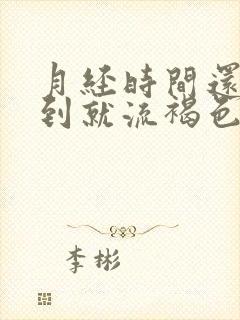 月经時間還
到就流褐色
李彬